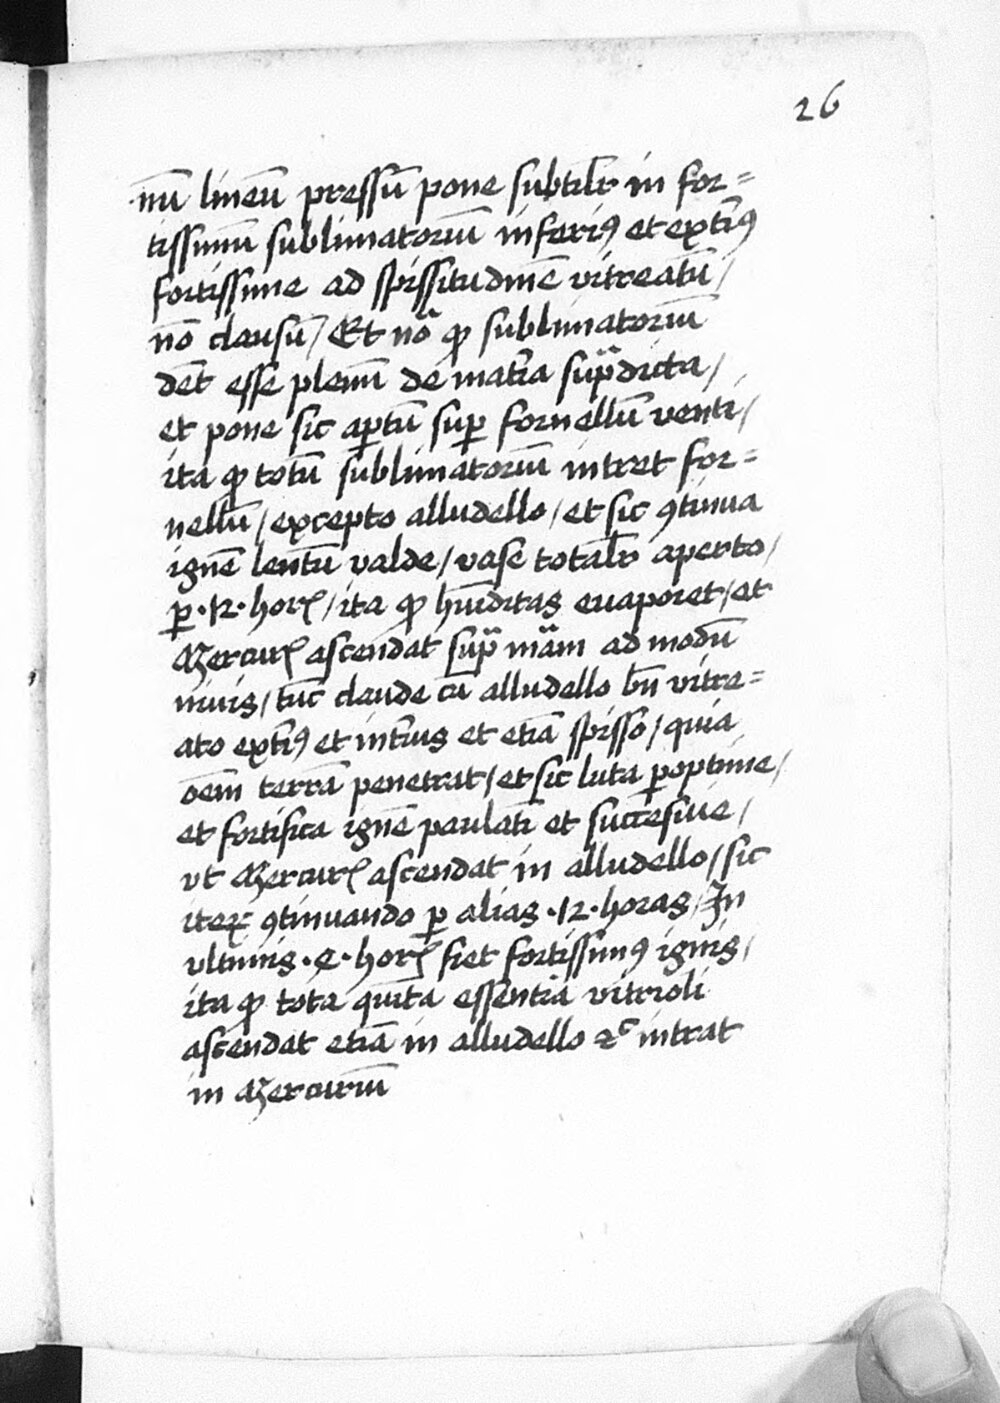 26
nū lineū pressū pone subtilr in for=
tissimū sublimatoriū inferiꝯ et extīꝯ
fortissime ad spissitudinē vitreatū /
nō clausū / Et nō ꝙ sublimatoriū
dēt esse plenū de mat̄ia sup̄dicta /
et pone sic aꝑtū suꝑ fornellū venti /
ita ꝙ totū sublimatoriū intret for=
nellū / excepto alludello / et sic ꝯtinua
ignē lentū valde / vase totalr aperto /
ꝑ · 12 · horꝭ / ita ꝙ hūiditas euaporet / et
Mercurꝭ ascendat sup̄ mām ad modū
niuis / tūc claude cū alludello bn̄ vitre=
ato extīꝯ et int̄ius et etiā spisso / quia
oēm terrā penetrat / et sic luta ꝑoptime /
et fortifica ignē paulatī et succesiue /
vt Mercurꝭ ascendat in alludello / sic
iteꝝ ꝯtinuando ꝑ alias · 12 · horas / In
vltimis · e · horꝭ fiet fortissimꝯ ignis /
ita ꝙ tota quīta essentia vitrioli
ascendat etiā in alludello ⁊c intrat
in Mercuriū